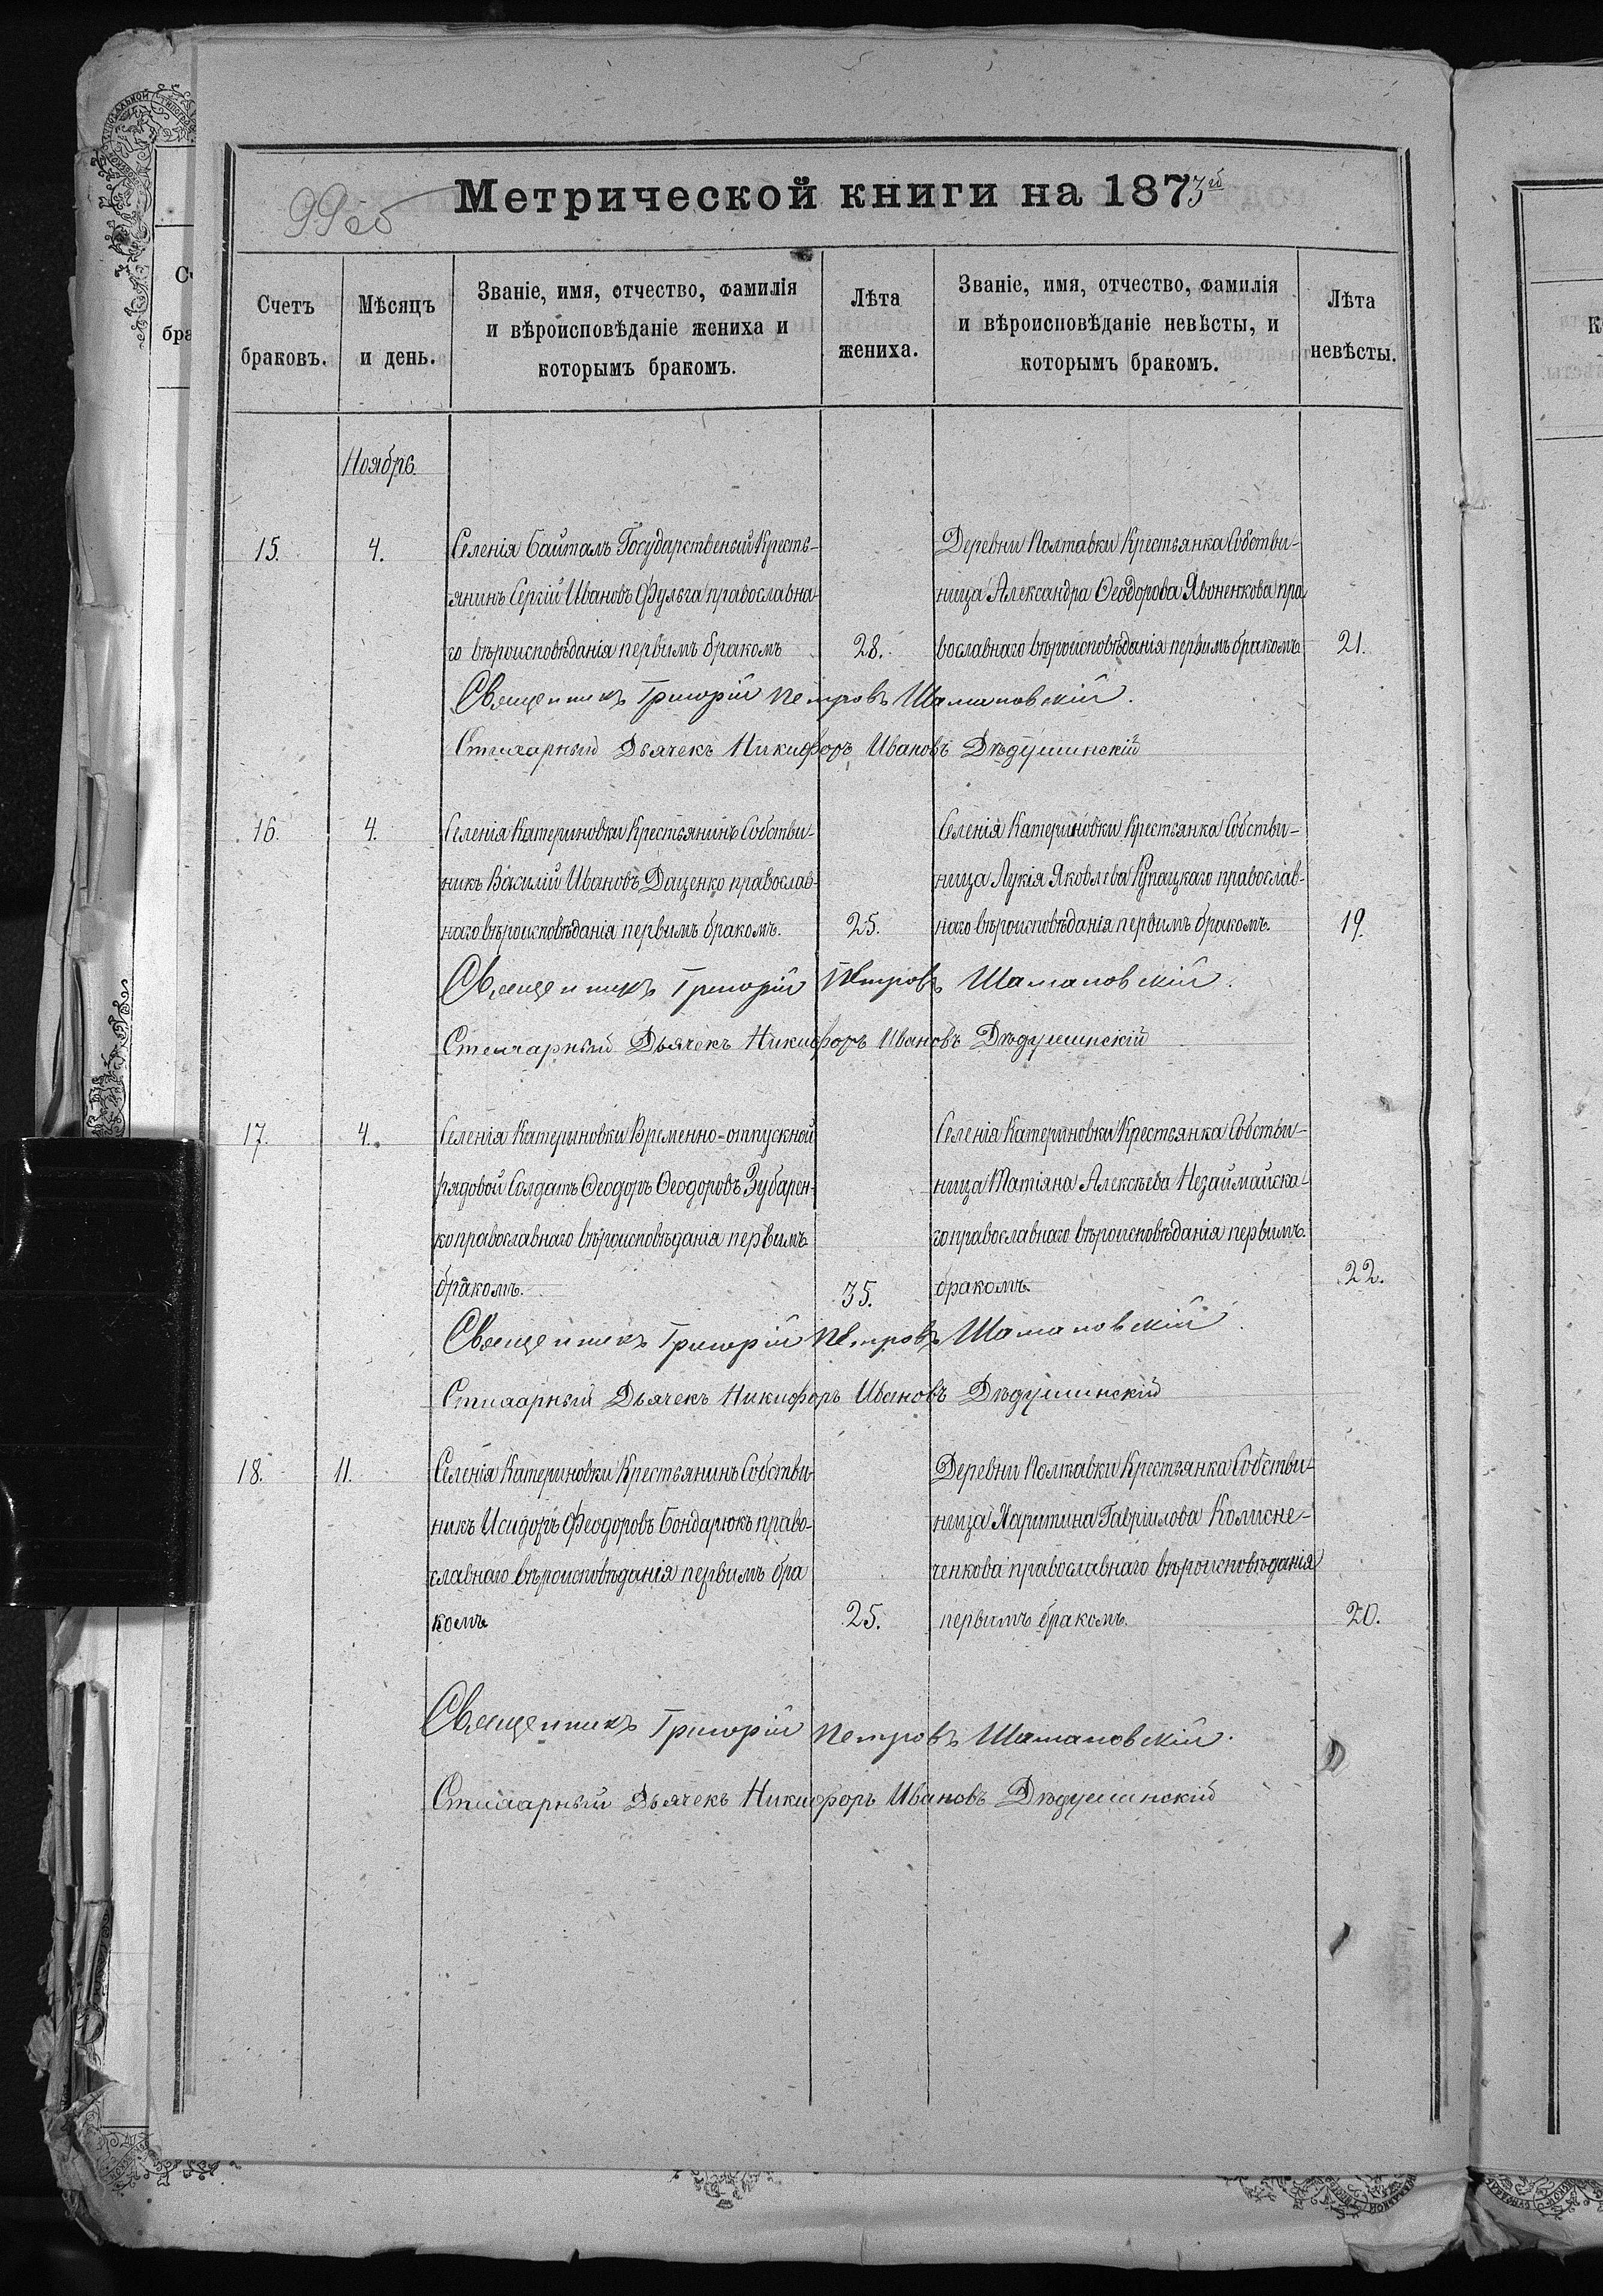 99об
Метрической книги на 1873й
Счетъ браковъ.
Мѣсяцъ и день.
Званіе, имя, отчество, фамилія
и вѣроисповѣданіе жениха и
которымъ бракомъ.
Лѣта жениха.
Званіе, имя, отчество, фамилія
и вѣроисповѣданіе невѣсты, и
которымъ бракомъ.
Лѣта невѣсты.
Ноябрь.
15. 4. Селенія Байталъ Государственый Кресть-
янинъ Сергій Ивановъ Фульга православна-
го вѣроисповѣданія первымъ бракомъ 28.
Деревни Полтавки Крестьянка Собстви-
ница Александра Ѳеодорова Явоненкова пра
вославнаго вѣроисповѣданія первымъ бракомъ 21.
Священникъ Григорій Петровъ Шамановскій.
Стихарный Дьячекъ Никифоръ Ивановъ Дѣдушинскій
16. 4. Селенія Катериновки Крестьянинъ Собстви-
никъ Василій Ивановъ Даценко православ-
наго вѣроисповѣданія первымъ бракомъ. 25.
Селенія Катериновки Крестьянка Собстви-
ница Лукія Яковлева православ-
наго вѣроисповѣданія первымъ бракомъ. 19.
Священникъ Григорій Петровъ Шамановскій.
Стихарный Дьячекъ Никифоръ Ивановъ Дѣдушинскій
17. 4. Селенія Катериновки Временно-отпускной
рядовой Солдатъ Ѳеодоръ Ѳеодоровъ Зубарен-
ко православнаго вѣроисповѣданія первымъ
бракомъ. 35.
Селенія Катериновки Крестьянка Собстви-
ница Татіяна Алексѣева Незаймайска-
го православнаго вѣроисповѣданія первымъ
бракомъ. 22.
Священникъ Григорій Петровъ Шамановскій.
Стихарный Дьячекъ Никифоръ Ивановъ Дѣдушинскій
18. 11. Селенія Катериновки Крестьянинъ Собстви-
никъ Исидоръ Феодоровъ Бондарюкъ право-
славнаго вѣроисповѣданія первымъ бра
комъ 25.
Деревни Полтавки Крестьянка Собстви-
ница Харитина Гавріилова Колисне-
ченкова православнаго вѣроисповѣданія
первымъ бракомъ. 20.
Священникъ Григорій Петровъ Шамановскій.
Стихарный Дьячекъ Никифоръ Ивановъ Дѣдушинскій